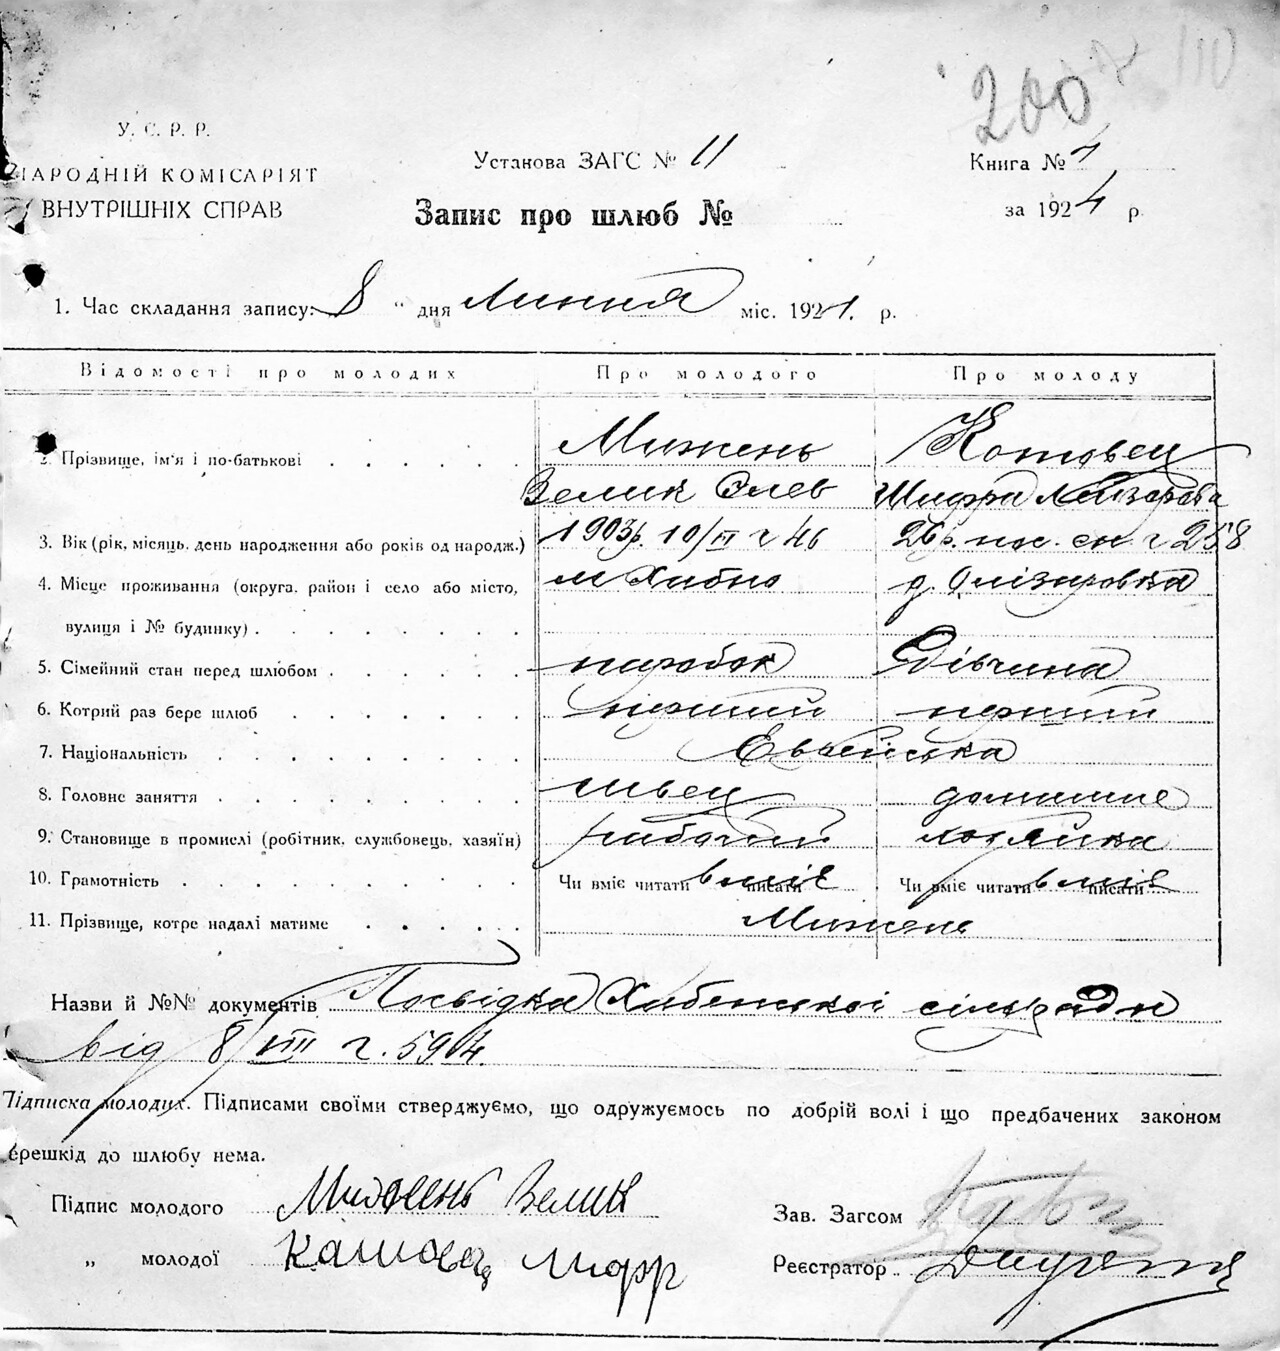 200
110
У. С. Р. Р.
НАРОДНІЙ КОМІСАРІЯТ
ВНУТРІШНІХ СПРАВ
Установа ЗАГС № 11
Книга № 1
Запис про шлюб №
за 1924 р.
1. Час складання запису: 8 " дня Липня міс. 1924. р.
Відомості про молодих Про молодого Про молоду
2. Прізвище, ім'я і по-батькові Мижень Котовец
Зелик Элев Шифра Лейзерова
3. Вік (рік, місяць, день народження або років од народж.) 1903р. 10/III г 46 26р. пос. сн. г 258
4. Місце проживання (округа, район і село або місто, м Хибно д. Олізаровка
вулиця і № будинку)
5. Сімейний стан перед шлюбом парубок Дівчина
6. Котрий раз бере шлюб перший перший
7. Національність Еврейська
8. Головне заняття швец домашне
9. Становище в промислі (робітник, службовець, хазяїн) рабочий хозяйка
10. Грамотність Чи вміє читати писати вміе Чи вміє читати писати вміе
11. Прізвище, котре надалі матиме Мижень
Назви й №№ документів Посвідка Хабенської сільради
від 8/VIII г. 5904.
Підписка молодих. Підписами своїми стверджуємо, що одружуємось по добрій волі і що предбачених законом
перешкід до шлюбу нема.
Підпис молодого Мижень Зелик
Зав. Загсом
„ молодої Катовец Шифр
Реєстратор